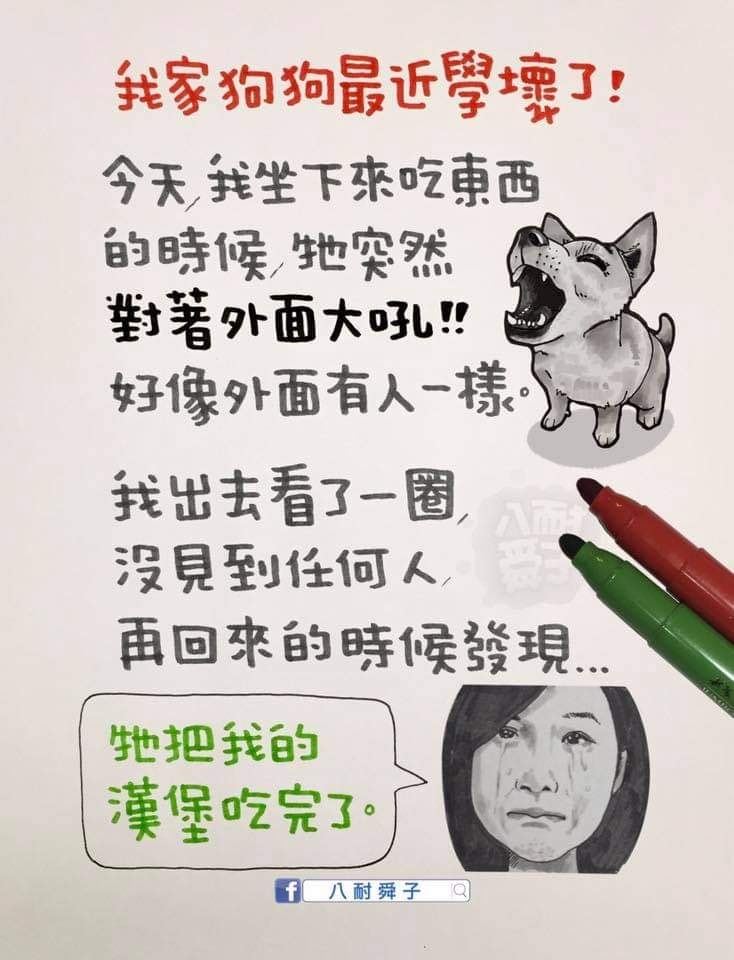 我家狗狗最近學壞了!
今天,我坐下來吃東西
的時候,牠突然
對著外面大吼!!
好像外面有人一樣。
我出去看了一圈,
沒見到任何人,
再回來的時候發現...
牠把我的
漢堡吃完了。
八耐
舜子
f 八耐舜子